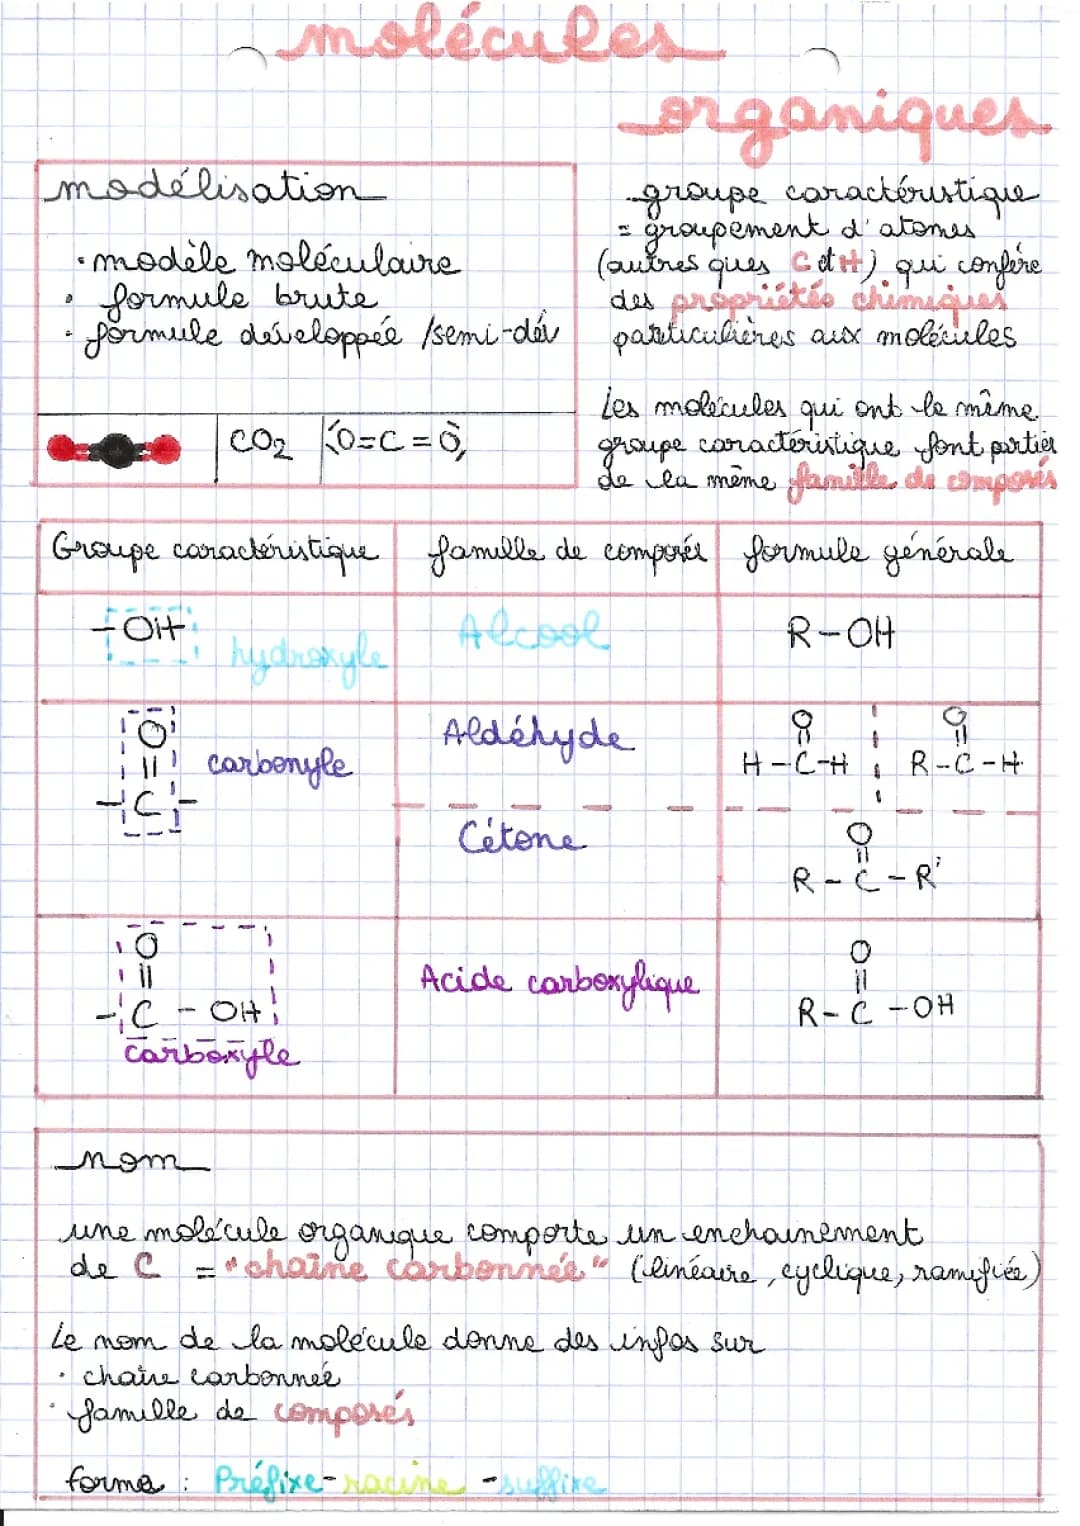 molécules
organiques
modélisation
· modèle moléculaire
· formule brute
· formule développée /semi-dév
CO2
O=C=O
groupe caractéristique
= groupement d'atomes
(autres ques C et H) qui confère
des propriétés chimiques
particulières aux molécules
Les molécules qui ont le même
groupe caractéristique font partier
de la même famille de composés
Groupe caractéristique
famille de composés
formule générale
-OH
hydroxyle
Alcool
R-OH
O
||
-C-
carbonyle
Aldéhyde
O
||
H-C-H
O
||
R-C-H
Cétone
O
||
R-C-R'
O
||
-C-OH
carboxyle
Acide carboxylique
O
||
R-C-OH
nom
une molécule organique comporte un enchainement
de C = "chaîne carbonnée" (linéaire, cyclique, ramifiée)
Le nom de la molécule donne des infos sur
· chaîne carbonnée
· famille de composés
forme : Préfixe-racine-suffixe